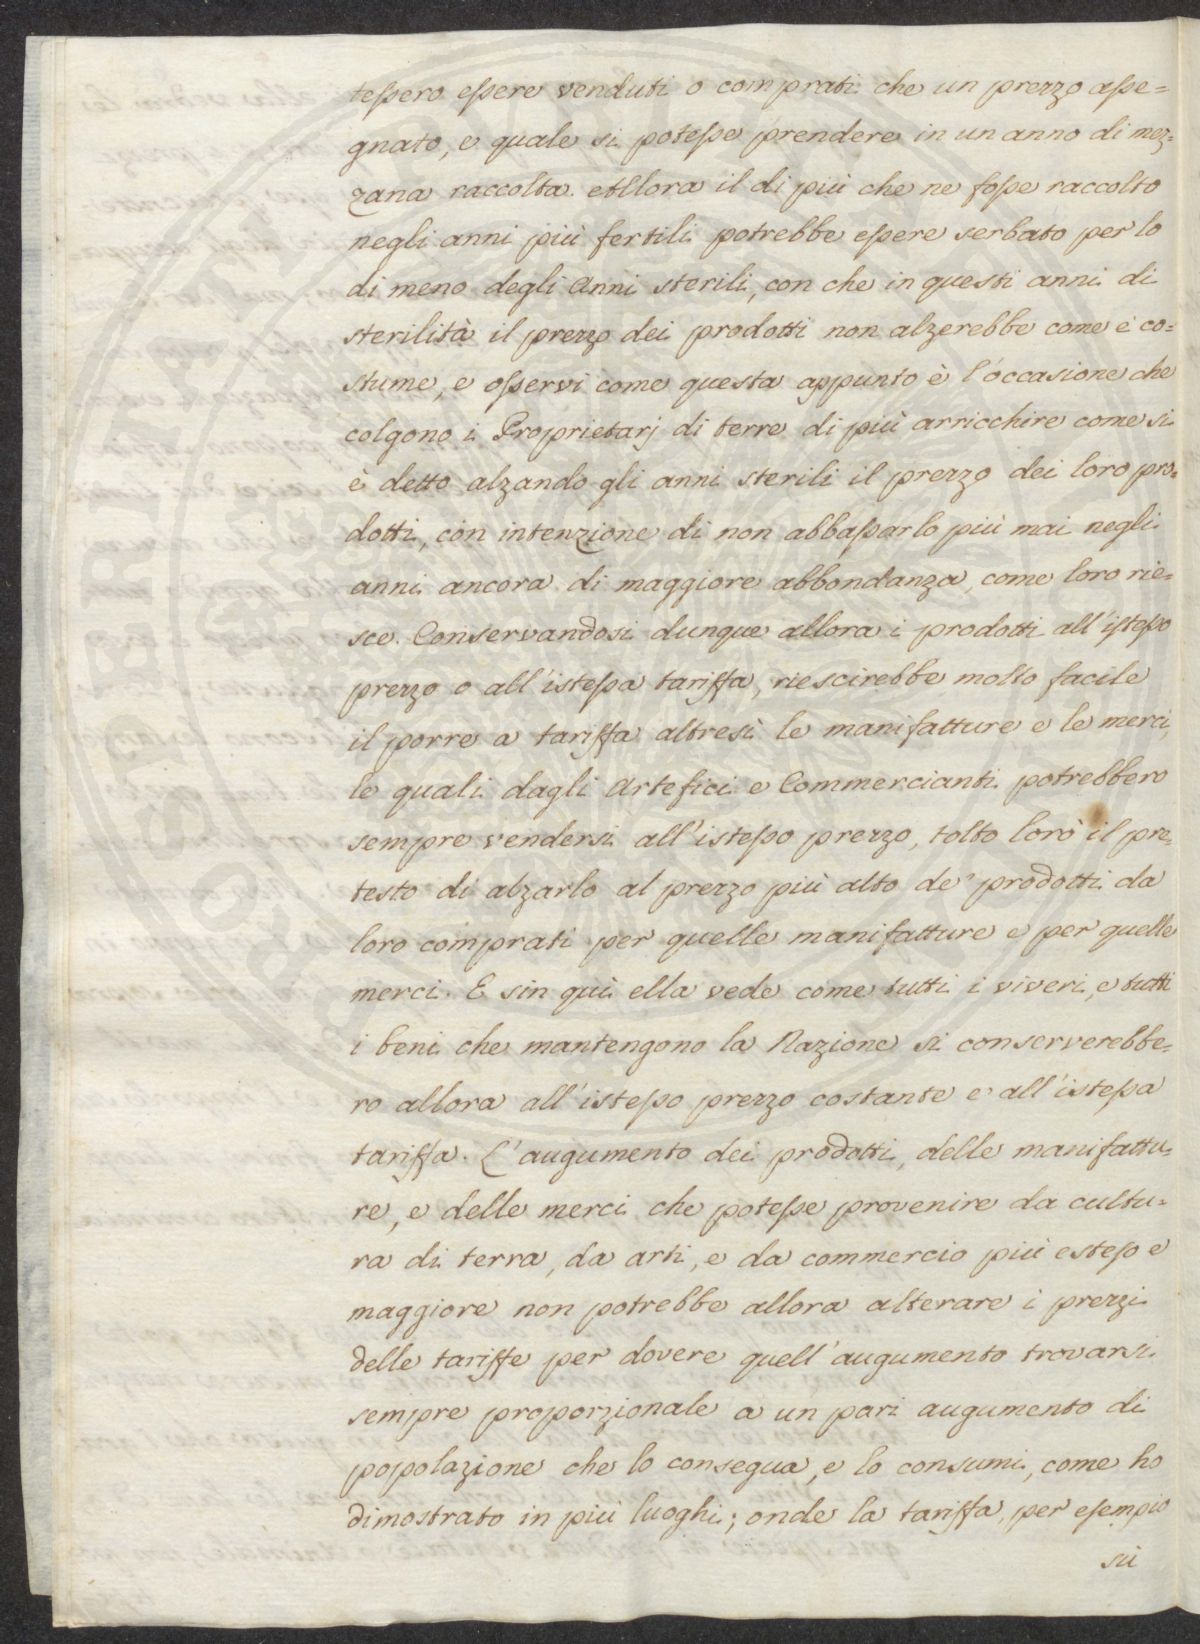 teſsero eſsere venduti o comprati che un prezzo aſse=
gnato, e quale si poteſse prendere in un anno di mez=
zana raccolta. Allora il di più che ne foſse raccolto
negli anni più fertili potrebbe eſsere serbato per lo
di meno degli Anni sterili, con che in questi anni di
sterilità il prezzo dei prodotti non alzerebbe come è co=
stume, e oſservi come questa appunto è l'occasione che
colgono i Proprietarj di terre di più arricchire come si
è detto alzando gli anni sterili il prezzo dei loro pro=
dotti, con intenzione di non abbaſsarlo più mai negli
anni ancora di maggiore abbondanza, come loro rie=
sce. Conservandosi dunque allora i prodotti all'isteſso
prezzo o all'isteſsa tariffa, riescirebbe molto facile
il porre a tariffa altresì le manifatture e le merci,
le quali dagli Artefici e Commercianti potrebbero
sempre vendersi all'isteſso prezzo, tolto loro il pre=
testo di alzarlo al prezzo più alto de' prodotti da
loro comprati per quelle manifatture e per quelle
merci. E sin quì ella vede come tutti i viveri, e tutti
i beni che mantengono la Nazione si conserverebbe=
ro allora all'isteſso prezzo costante e all'isteſsa
tariffa. L'augumento dei prodotti, delle manifattu=
re, e delle merci che poteſse provenire da cultu=
ra di terra, da arti, e da commercio più esteſo e
maggiore non potrebbe allora alterare i prezzi
delle tariffe per dovere quell'augumento trovarsi
sempre proporzionale a un pari augumento di
popolazione che lo consegua, e lo consumi, come ho
dimostrato in più luoghi; onde la tariffa, per eſempio
sù